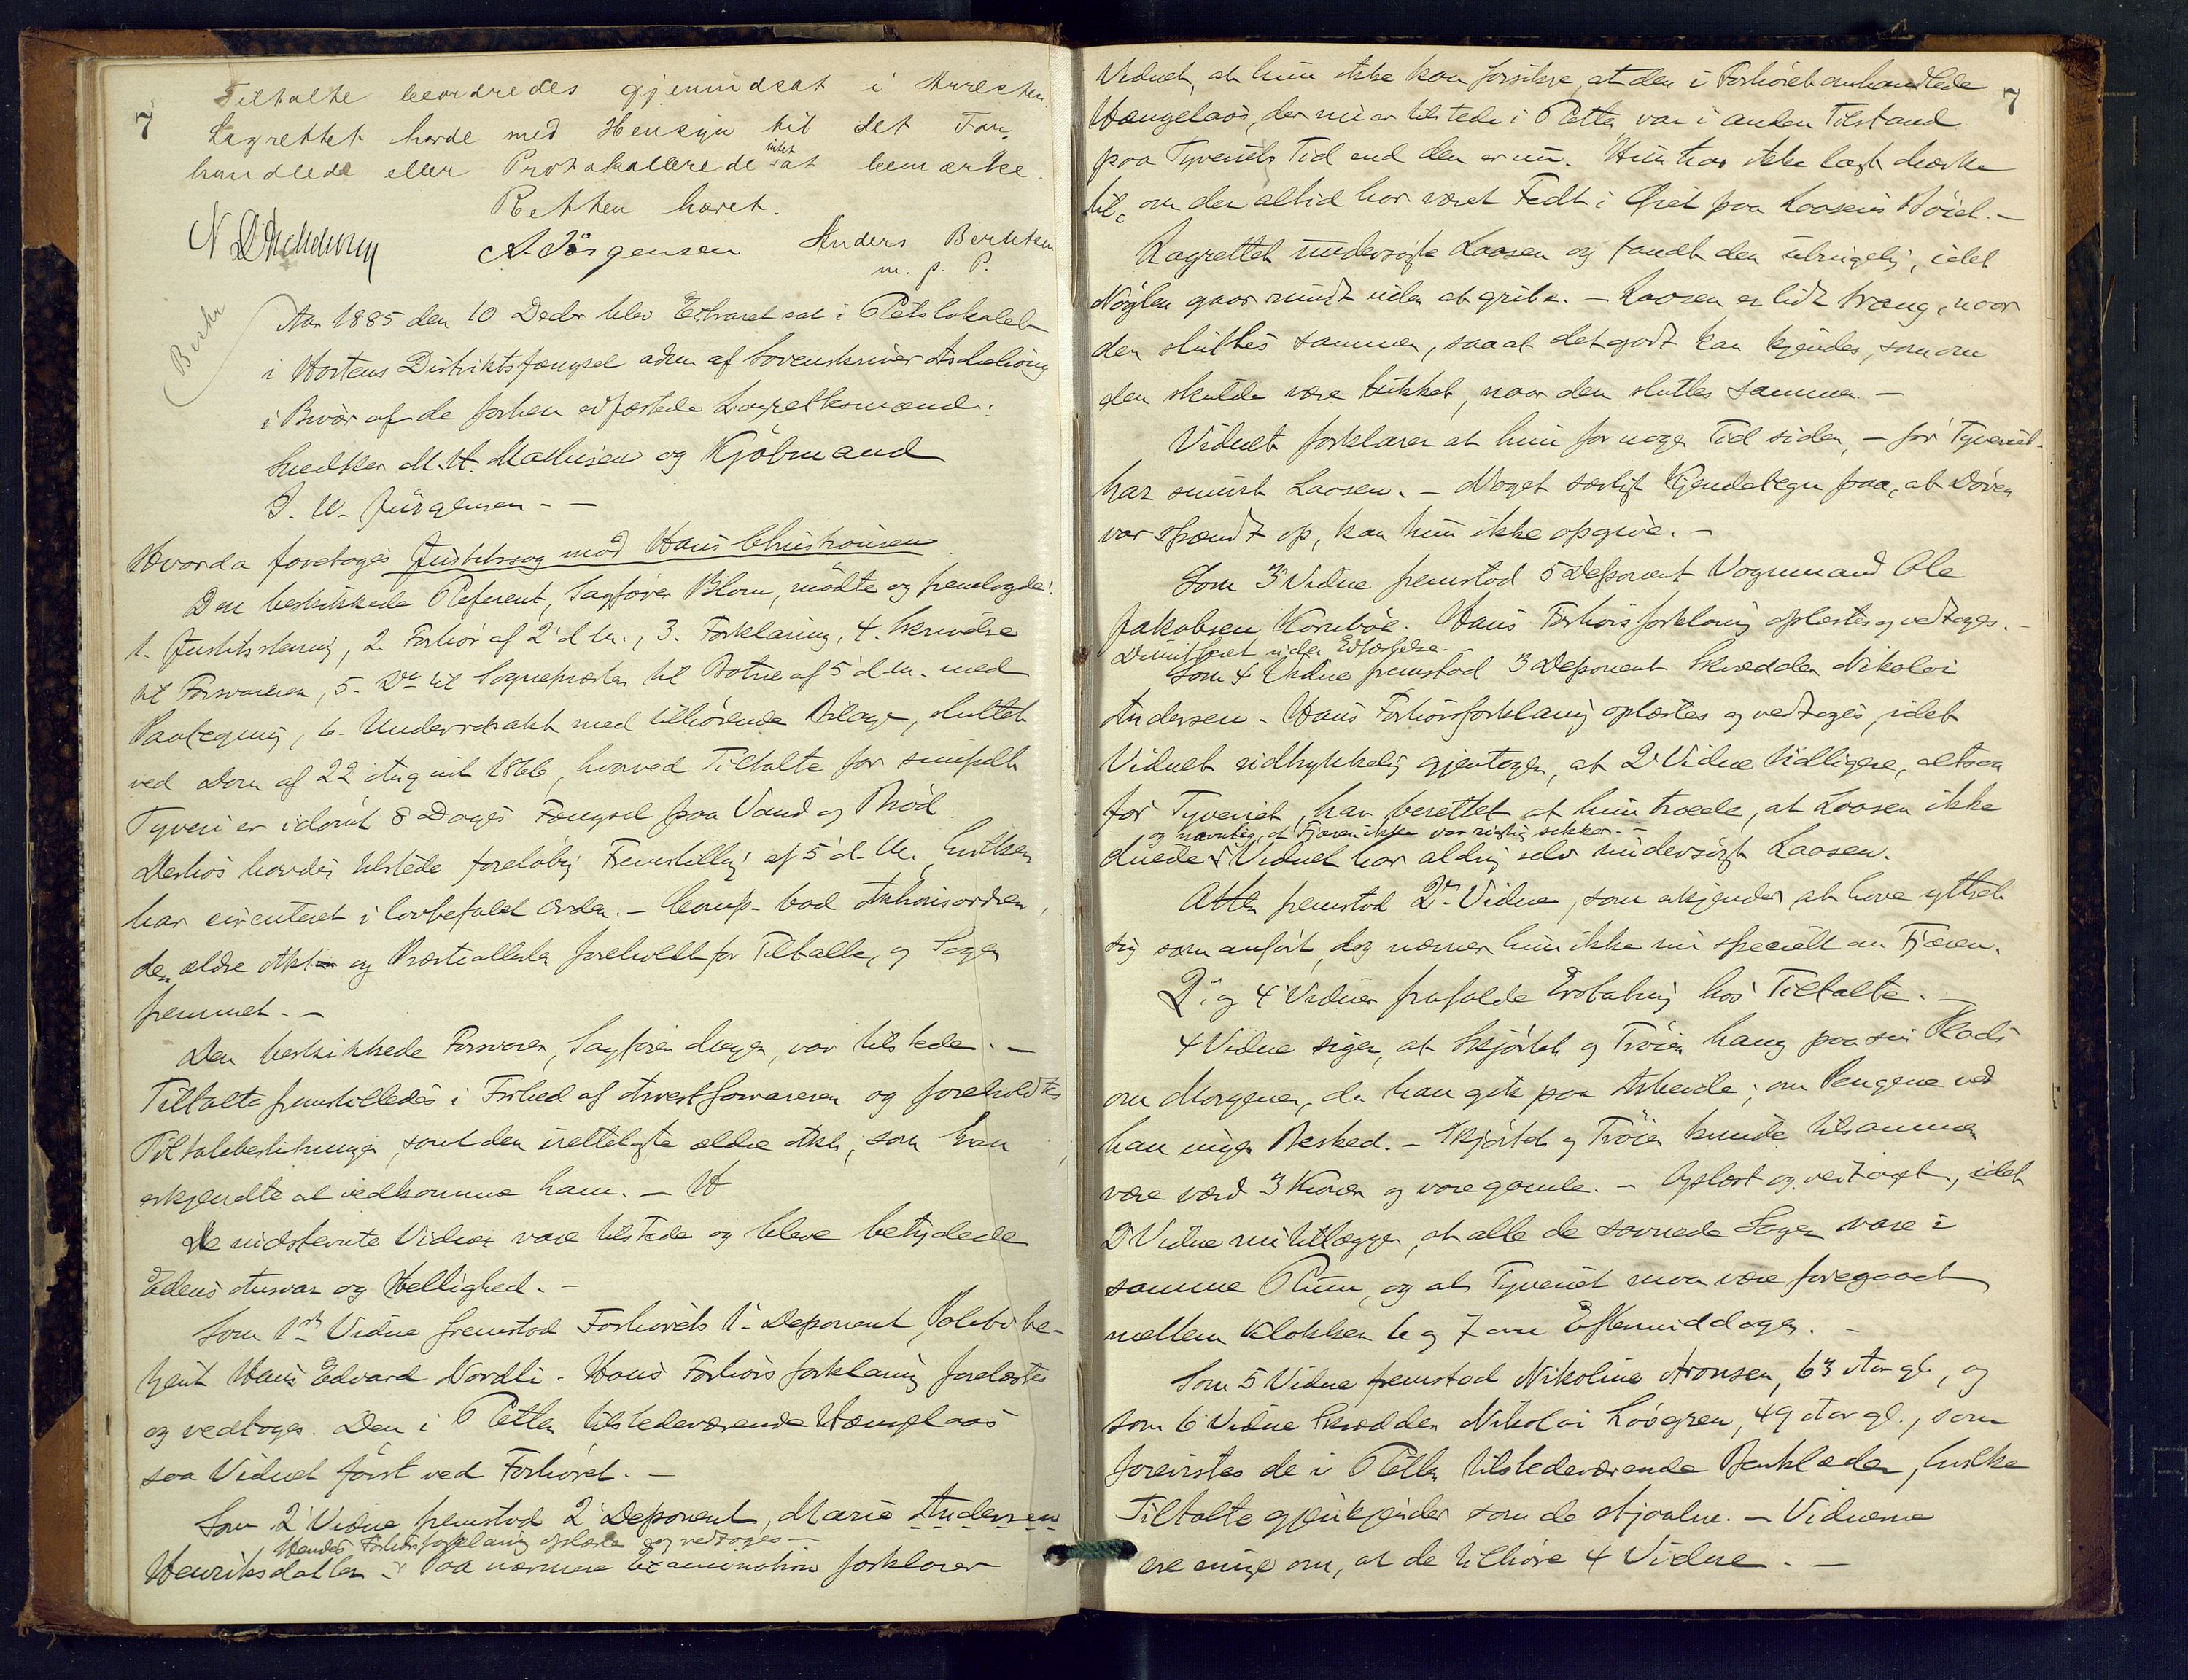 7
Tiltalte beordredes gjenindsat i Arresten.
Lagrettet havde med Hensyn til det For-
handlede eller Protokollerede intet at bemærke.
Retten hævet.
A. Jörgensen Anders Berntsen
m. p. P.
Beskr
Aar 1885 den 10 Decbr blev Extraret sat i Retslokalet
i Hortens Distriktsfængsel adm. af Sorenskriver
i Bivær af de forhen edfæstede Lagrettesmænd:
Snedker M. H. Mathisen og Kjöbmand
J. W. Jürgensen. -
Hvorda foretoges Justitssag mod Hans Christiansen.
Den beskikkede Referent, Sagförer Blom, mödte og fremlagde:
1. Justitsstevning, 2. Forhör af 2 d. M., 3. Forklaring, 4. Skrivelse
til Forsvareren, 5. Do til Sognepresten til Botne af 5 d. M. med
Paategning, 6. Underretsakt med tilhörende Bilage, sluttet
ved Dom af 22 August 1866, hvorved Tiltalte for simpelt
Tyveri er idömt 8 Dages Fængsel paa Vand og Bröd.
Desuden havdes tilstede foreløbig Fremstilling af 5 d. M. hvilken
har circuleret i lovbefalet Orden. - Comp. bad Aktionsordren,
den ældre Akt og Præsteattesten foreholdt for Tiltalte, og Sagen
fremmet. -
Den beskikkede Forsvarer, Sagförer Meyer, var tilstede. -
Tiltalte fremstilledes i Frihed af Arrestforvareren og foreholdtes
Tiltalebeslutningen, samt den irettelagte ældre Akt, som han
erkjendte at vedkomme ham. -
De indstevnte Vidner vare tilstede og bleve betydede
Edens Ansvar og Hellighed. -
Som 1st Vidne fremstod Forhörets 1. Deponent, Politibe-
tjent Hans Edvard Nordli. Hans Forhörsforklaring forelæstes
og vedtoges. Den i Retten tilstedeværende Hængelaas
saa Vidnet först ved Forhöret. -
Som 2 Vidne fremstod 2 Deponent, Marie Andersen
Hendes Forhörsforklaring oplæstes og vedtoges -
Henriksdatter. Paa nærmere Examination forklarer
7
Vidnet, at hun ikke kan forsikre, at den i Forhöret omhandlede
Hængelaas, der nu er tilstede i Retten, var i anden Tilstand
paa Tyveriets Tid end den er nu. Hun har ikke lagt Mærke
til, om der altid har været Fedt i Öiet paa Laasens Höide. -
Lagrettet undersögte Laasen og fandt den ubrugelig, idet
Nöglen gaar rundt uden at gribe. - Laasen er lidt trang, naar
den sluttes sammen, saa at det godt kan kjendes, som om
den skulde være lukket, naar den sluttes sammen. -
Vidnet forklarer at hun for nogen Tid siden, - för Tyveriet -
har smurt Laasen. - Noget særligt Kjendetegn paa, at Dören
var spændt op, kan hun ikke opgive. -
Som 3 Vidne fremstod 5 Deponent Vognmand Ole
Jakobsen Kornböe. Hans Forhörsforklaring oplæstes og vedtoges. -
Dimitteret uden Edfæstelse. -
Som 4 Vidne fremstod 3 Deponent Skrædder Nikolai
Andersen. Hans Forhörsforklaring oplæstes og vedtoges, idet
Vidnet udtrykkelig gjentager, at 2 Vidne tidligere, altsaa
för Tyveriet, har berettet at hun troede, at Laasen ikke
og navnlig, at Fjæren ikke var rigtig sikker. -
duede. Vidnet har aldrig selv undersögt Laasen.
Atter fremstod 2. Vidne, som erkjender, at have yttret
sig som anfört, dog nævner hun ikke nu specielt om Fjæren.
2. og 4 Vidner frafaldt Erstatning hos Tiltalte. -
4 Vidne siger, at Skjörtet og Tröien hang paa sin Plads
om Morgenen, da han gik paa Arbeide; om Pengene ved
han ingen Besked. - Skjörtet og Tröien kunde tilsammen
være værd 3 Kroner og vare gamle. - Oplæst og vedtaget, idet
2 Vidne nu tillægger, at alle de savnede Sager vare i
samme Rum, og at Tyveriet maa være foregaaet
mellem Klokken 6 og 7 om Eftermiddagen. -
Som 5 Vidne fremstod Nikoline Aronsen, 63 Aar gl., og
som 6 Vidne Skrædder Nikolai Lövgren, 49 Aar gl., som
forevistes de i Retten tilstedeværende Benklæder, hvilke
Tiltalte gjenkjender som de stjaalne. - Vidnerne
ere enige om, at de tilhöre 4 Vidne. -